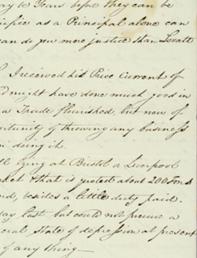 ay to Years before they can be
as a Principal alone can
can do you more justice than
I received his Price Current of
might have done much good in
as Trade flourished, but now of
rtunity of throwing any business
in doing it.
lying at Bristol a Liverpool
that is about 200 Tons
nd, besides a little duty paid.
ay last but could not procure a
eral state of depression at present
of any thing